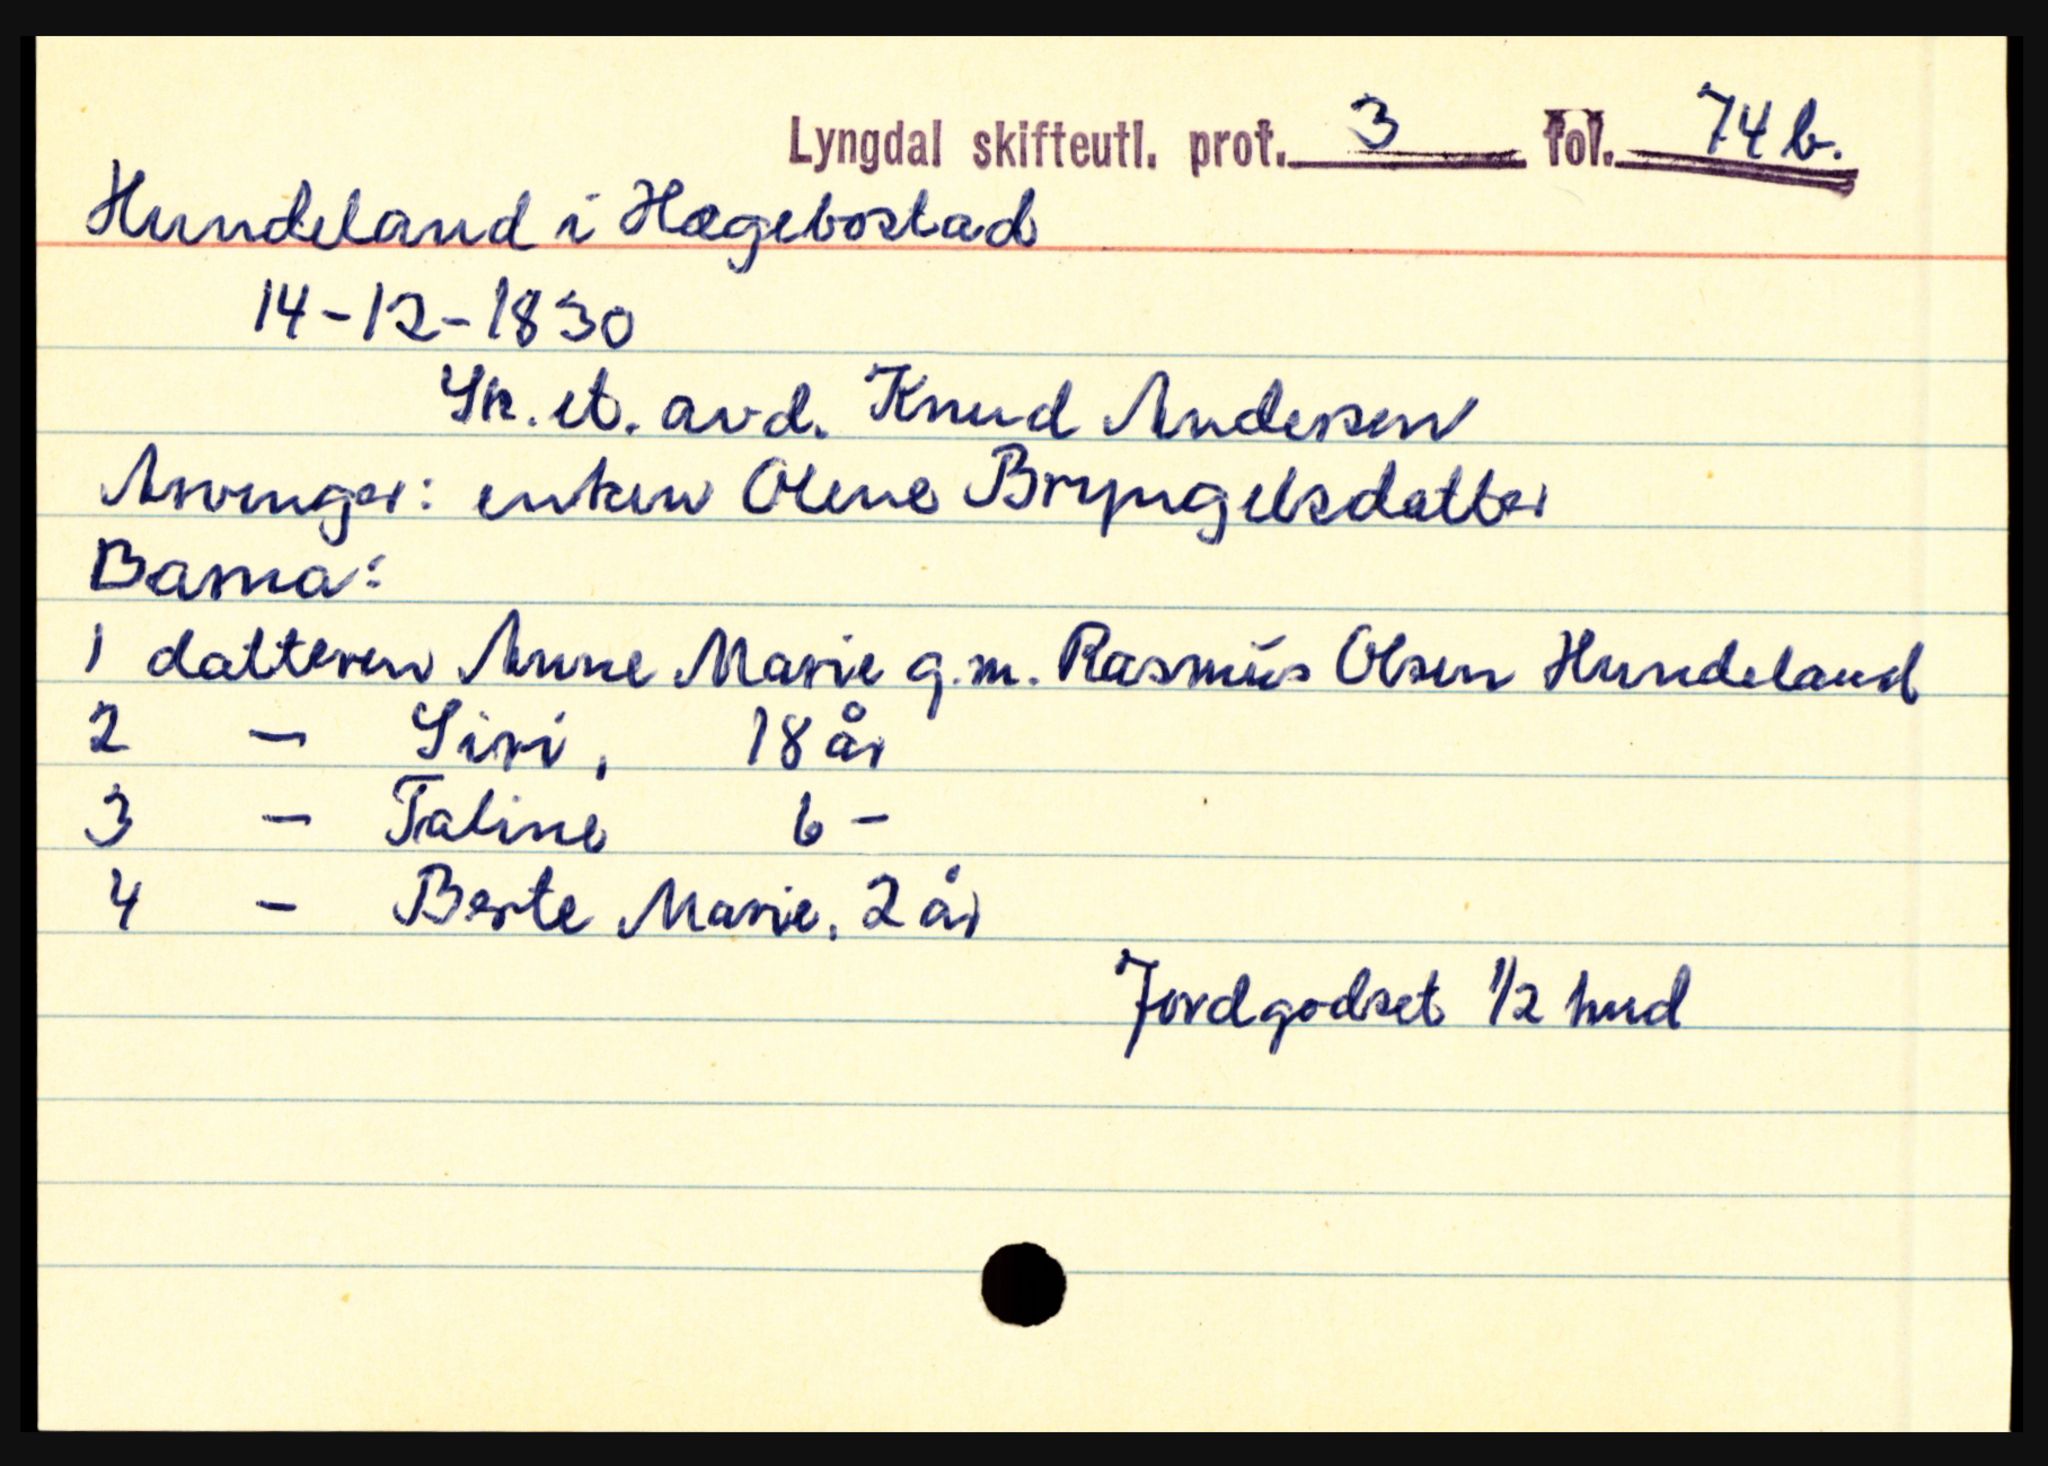 Lyngdal skifteutl. prot. 3 fol. 74 b.
Hundeland i Hægebostad
14-12-1830
Sk. et. avd. Knud Andersen
Arvinger: enken Olene Bryngelsdatter
Barna:
1 datteren Anne Marie g.m. Rasmus Olsen Hundeland
2 - Siri, 18 år
3 - Taline 6 -
4 - Berte Marie. 2 år
Jordgodset 1/2 hud